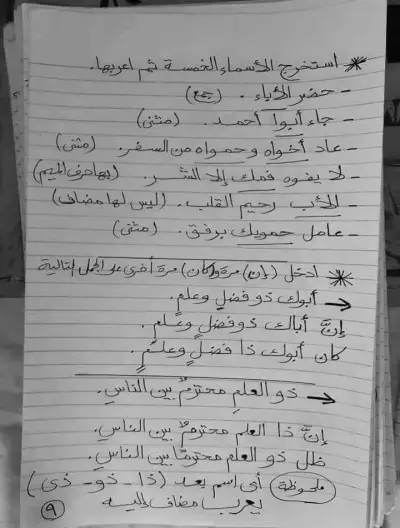 * استخرج الأسماء الخمسة ثم اعربها.
- حضر الآباء. (جمع)
- جاء أبوا أحمد. (مثنى)
- عاد أخواه وحمواه من السفر. (مثنى)
- لا يفوه فمك إلا الشر. (بها حرف الميم)
- الأب رحيم القلب. (ليس لها مضاف)
- عامل حمويك برفق. (مثنى)
* ادخل (إن) مرة و(كان) مرة أخرى على الجمل التالية
← أبوك ذو فضلٍ وعلمٍ.
إنَّ أباك ذو فضلٍ وعلمٍ.
كان أبوك ذا فضلٍ وعلمٍ.
← ذو العلمِ محترمٌ بين الناسِ.
إنَّ ذا العلمِ محترمٌ بين الناسِ.
ظل ذو العلمِ محترمًا بين الناسِ.
ملحوظة أى اسم بعد (ذا - ذو - ذى)
يعرب مضاف إليه
٩